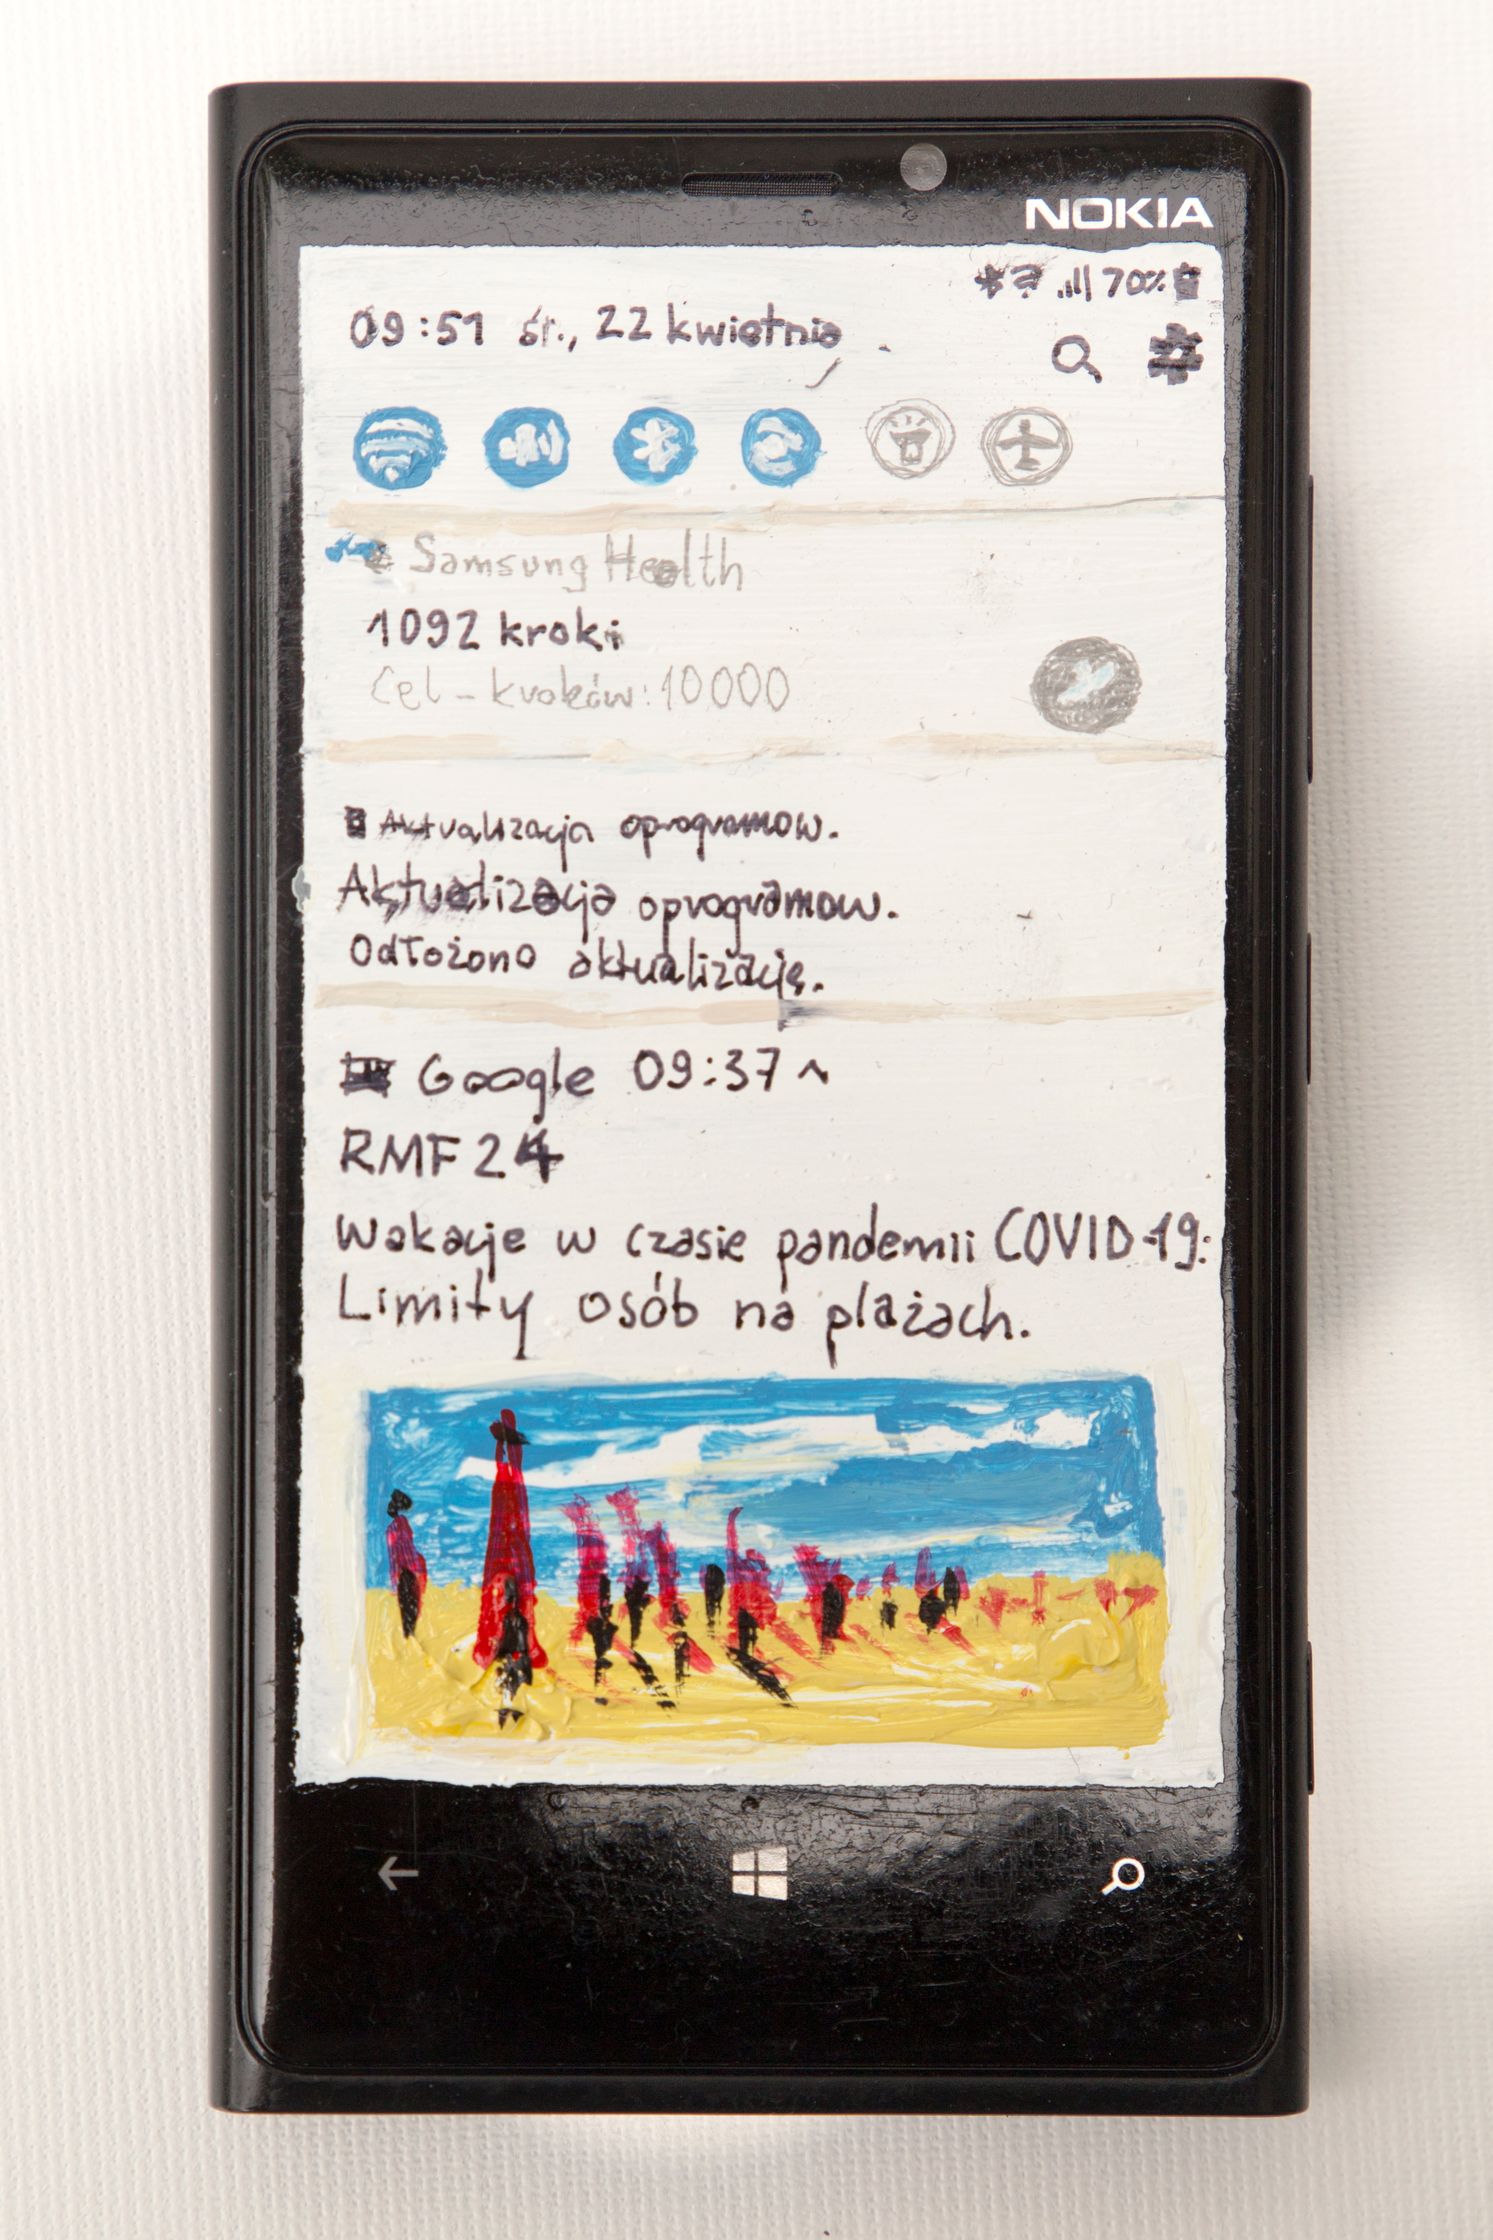 NOKIA
70%
09:51 śr., 22 kwietnia
Samsung Health
1092 kroki
Cel - kroków: 10000
Aktualizacja oprogramow.
Aktualizacja oprogramow.
Odłożono aktualizację.
Google 09:37
RMF24
Wakacje w czasie pandemii COVID-19:
Limity osób na plażach.